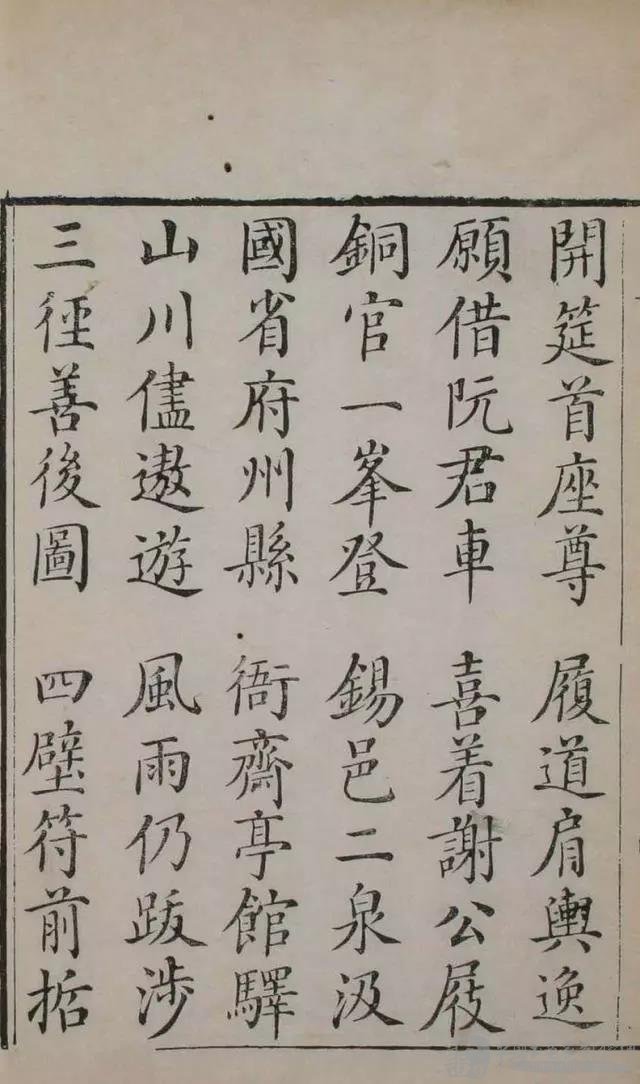 開筵首座尊 履道肩輿逸
願借阮君車 喜着謝公屐
銅官一峯登 錫邑二泉汲
國省府州縣 衙齋亭館驛
山川儘遨遊 風雨仍跋涉
三徑善後圖 四壁符前哲